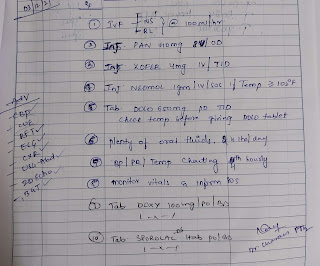 Rx
① IVF NS
RL @ 100ml/hr
② Inj PAN 40mg IV/OD
③ Inj ZOFER 4mg IV/TID
④ Inj NEOMOL 1gm/IV/SOS if Temp ≥ 102°F
⑤ Tab DOLO 650mg PO TID
Check temp before giving DOLO tablet
⑥ plenty of oral fluids. lts/day
⑦ BP/PR/Temp Charting 4th hourly
⑧ monitor vitals & inform SOS
⑨ Tab DOXY 100mg/PO/BD
1-x-1
⑩ Tab SPOROLAC DS PO/BD
1-x-1
Adv
CBP
CUE
RFT
ECG
CXR
USG Abd
2D Echo
LFT